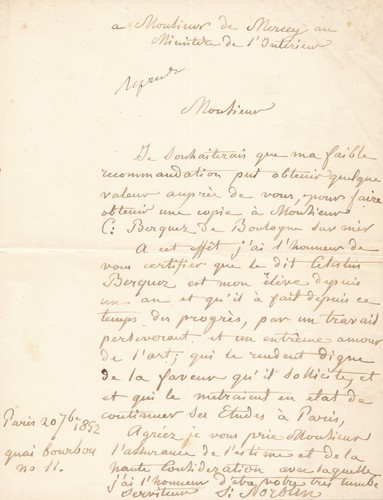 a Monsieur de Mercey au
Ministère de l'Interieur
Monsieur
Je Souhaiterais que ma faible
recommandation put obtenir quelque
valeur auprès de vous, pour faire
obtenir une copie à Monsieur
C. Berquez de Boulogne sur mer
A cet effet j'ai l'honneur de
vous certifier que le dit Célestin
Berquez est mon élève depuis
un an et qu'il à fait depuis ce
temps des progrès, par un travail
perseverant et un entrème amour
de l'art; qui le rendent digne
de la faveur qu'il sollicite, et
et qui le metraient en etat de
continuer ses Etudes à Paris,
Agréez je vous prie Monsieur
l'assurance de l'estime et de la
haute Considération avec laquelle
j'ai l'honneur d'etre votre très humble
Serviteur
Paris 20 7bre 1852
quai bourbon
no 11.